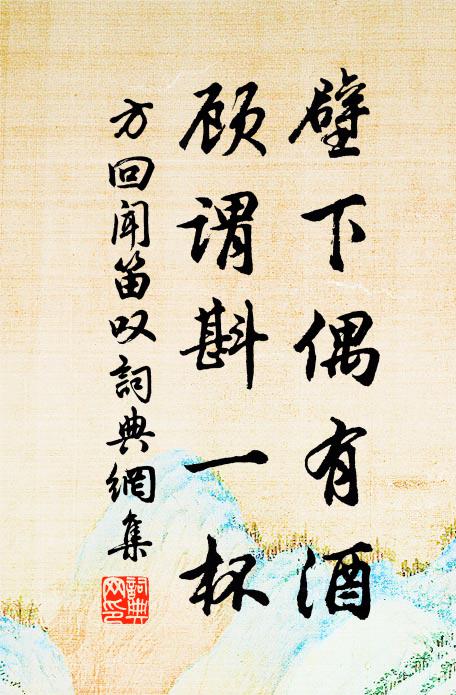 壁下偶有酒
顾谓斟一杯
方回闻笛叹词典網集
詞典网印